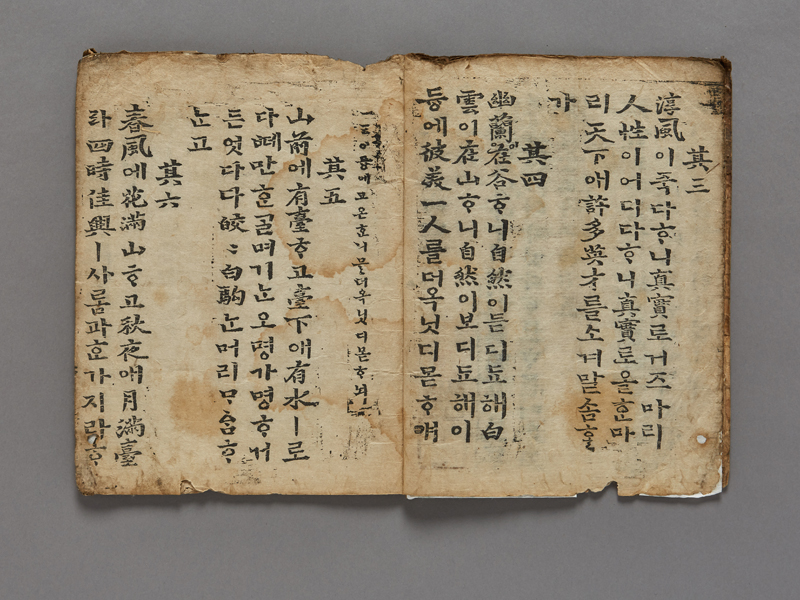 其三
淳風이죽다ᄒᆞ니眞實로거즈마리
人性이어디다ᄒᆞ니眞實로올ᄒᆞᆫ마
리天下애許多英才를소겨말ᄉᆞᆷᄒᆞᆯ
가
其四
幽蘭이在谷ᄒᆞ니自然이듣디됴해白
雲이在山ᄒᆞ니自然이보디됴해이
듕에彼美一人를더옥닛디몯ᄒᆞ얘
이듕에고온ᄒᆞᆫ니믈더옥닛디몯ᄒᆞ뇌
其五
山前에有臺ᄒᆞ고臺下애有水ㅣ로
다ᄠᅦ만ᄒᆞᆫᄀᆞᆯ며기ᄂᆞᆫ오명가명ᄒᆞ거
든엇다다皎〻白駒ᄂᆞᆫ머리ᄆᆞᅀᆞᆷᄒᆞ
ᄂᆞᆫ고
其六
春風에花滿山ᄒᆞ고秋夜애月滿臺
라四時佳興ㅣ사ᄅᆞᆷ과ᄒᆞᆫ가지라ᄒᆞ